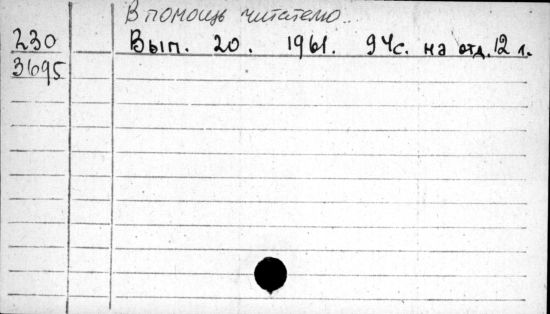 В помощь читателю..
230 Вып. 20. 1961. 94с. на отд. 12 л.
3695